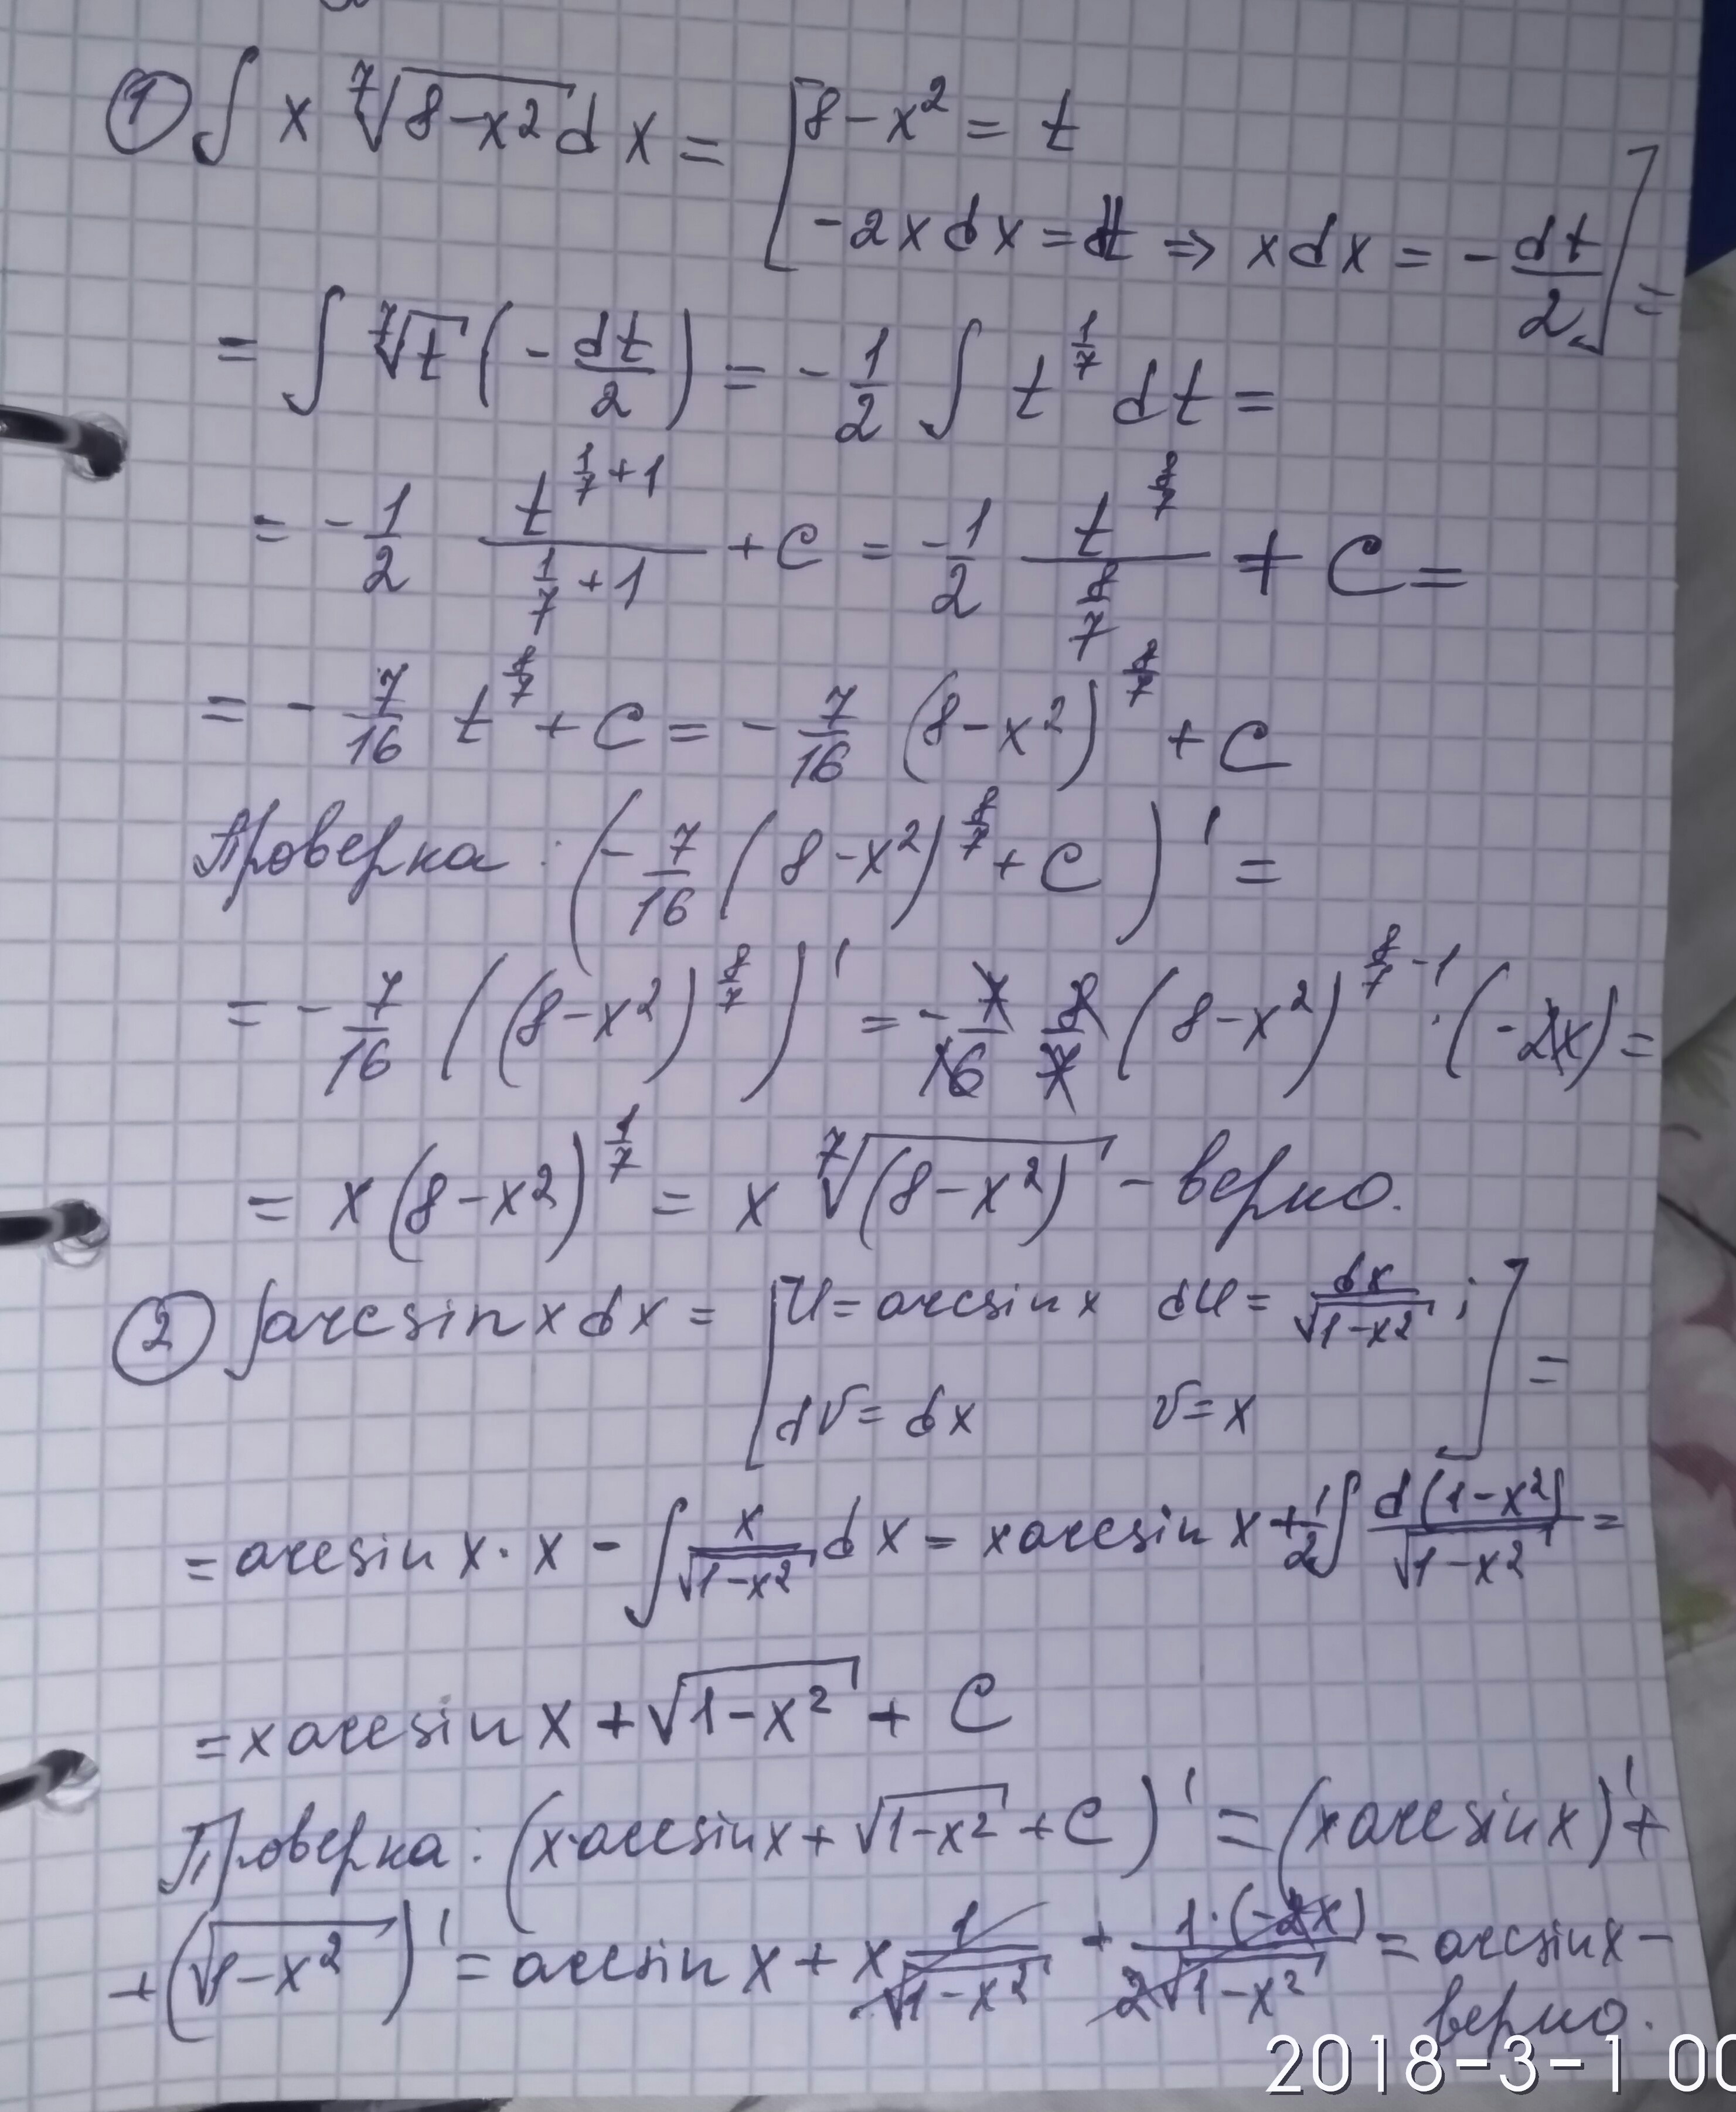 ① ∫ x ⁷√(8-x²) dx = [ 8-x² = t
-2xdx = dt ⇒ xdx = -dt/2 ] =
= ∫ ⁷√t (-dt/2) = -1/2 ∫ t^(1/7) dt =
= -1/2 t^(1/7+1)/(1/7+1) + C = -1/2 t^(8/7)/(8/7) + C =
= -7/16 t^(8/7) + C = -7/16 (8-x²)^(8/7) + C
Проверка: (-7/16 (8-x²)^(8/7) + C)' =
= -7/16 ((8-x²)^(8/7))' = -7/16 8/7 (8-x²)^(8/7-1) · (-2x) =
= x(8-x²)^(1/7) = x ⁷√(8-x²) - верно.
② ∫arcsin x dx = [ U = arcsin x dU = dx/√(1-x²) ;
dV = dx V = x ] =
= arcsin x · x - ∫ x/√(1-x²) dx = x arcsin x + 1/2 ∫ d(1-x²)/√(1-x²) =
= x arcsin x + √(1-x²) + C
Проверка: (x·arcsin x + √(1-x²) + C)' = (x arcsin x)' +
+ (√(1-x²))' = arcsin x + x 1/√(1-x²) + 1·(-2x)/2√(1-x²) = arcsin x -
верно.
2018-3-1 00